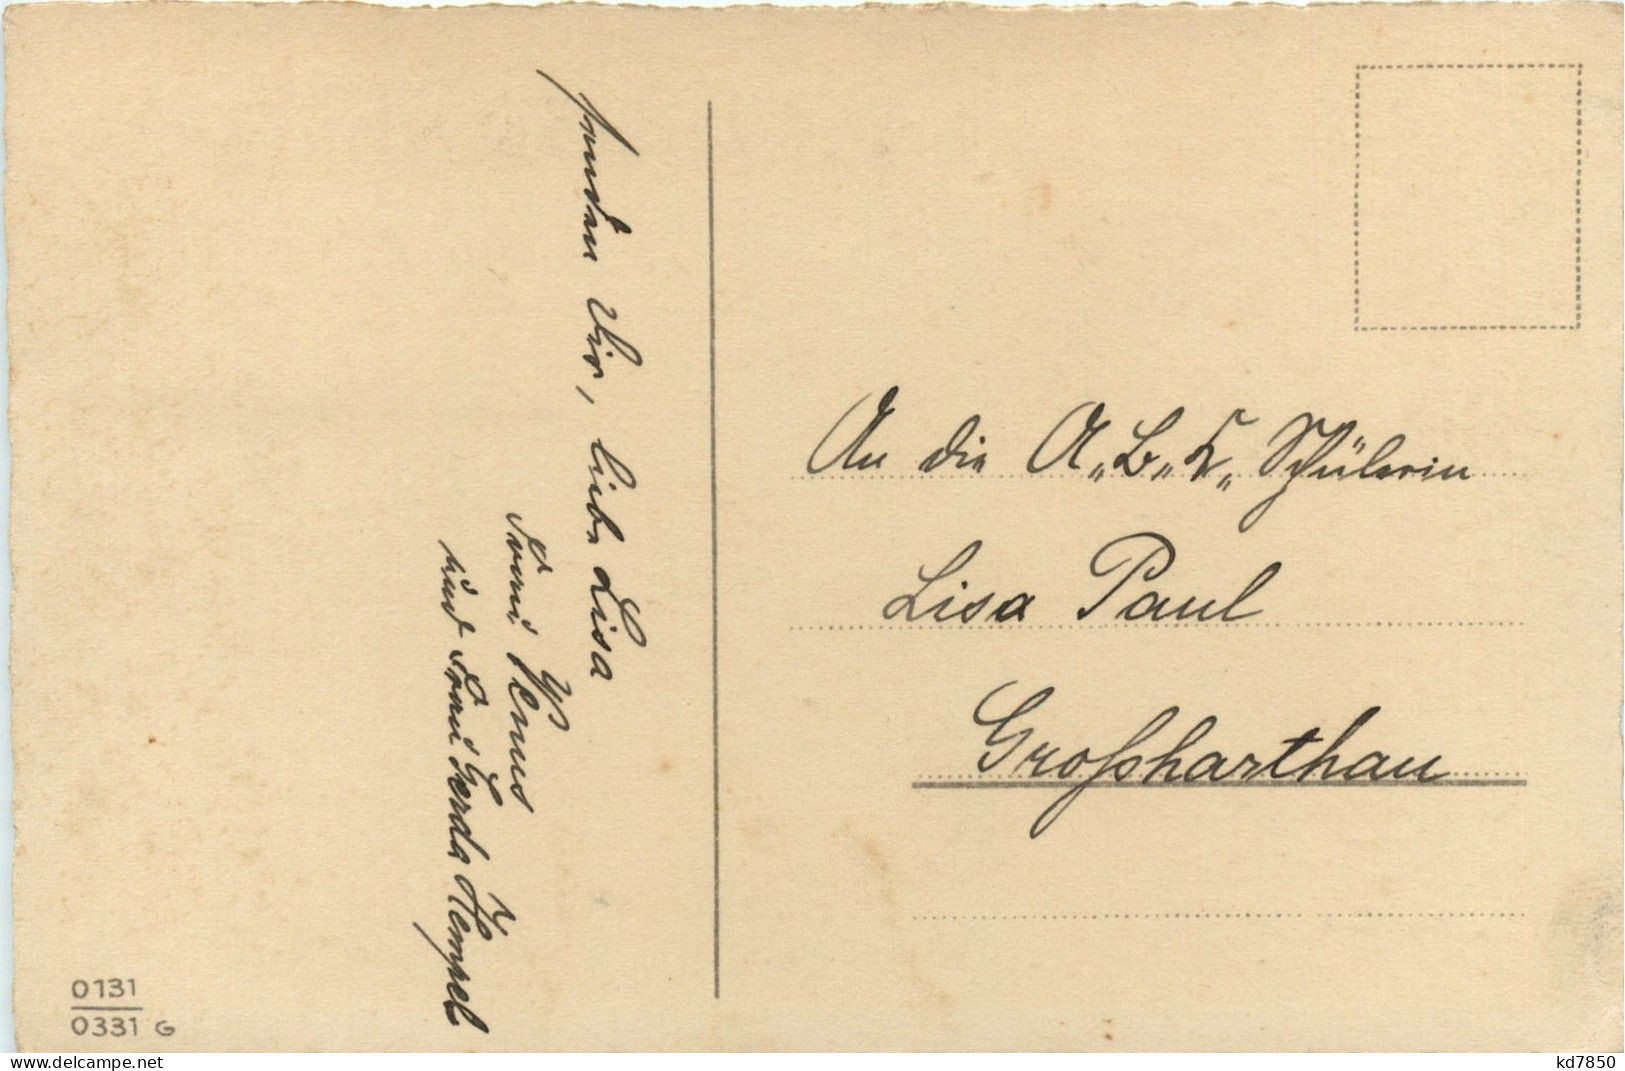 senden Dir, liebe Lisa
Frau Venus
und Frau Gerda Hempel
An die A„B„C„ Schülerin
Lisa Paul
Großharthau
0131
0331 G
www.delcampe.net
kd7850